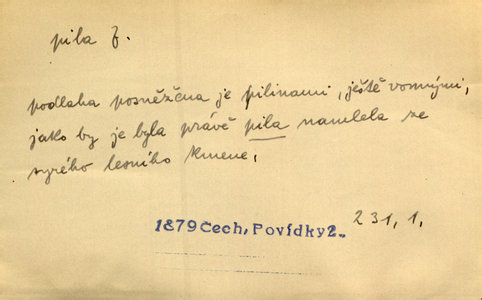 pila f.
podlaha posněžena je pilinami, ještě vonnými,
jako by je byla právě pila namlela ze
syrého lesního kmene,
1879 Čech, Povídky 2.
231, 1.